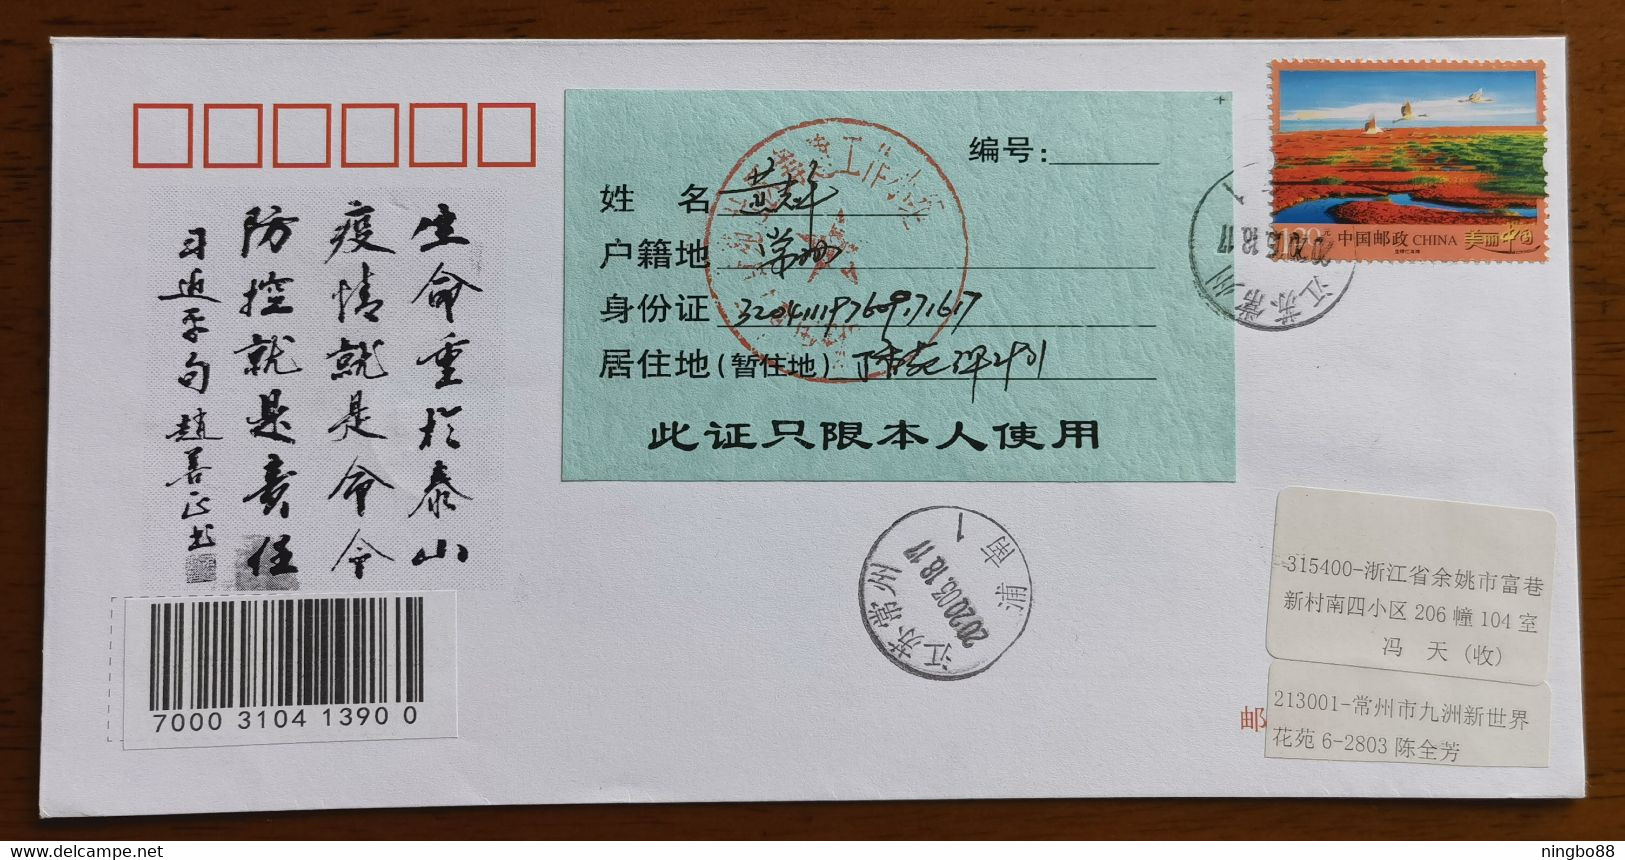 生命重於泰山
疫情就是命令
防控就是责任
习近平句 趙善正书
7000 3104 1390 0
编号：
姓 名
户籍地 常州
身份证 320411197609171617
居住地(暂住地)
此证只限本人使用
1.20元 中国邮政 CHINA 美丽中国
江苏常州
2020.05.18.17
1
江苏常州
2020.05.18.17
浦南 1
315400-浙江省余姚市富巷
新村南四小区 206 幢 104 室
冯 天 (收)
邮
213001-常州市九洲新世界
花苑 6-2803 陈全芳
delcampe.net
ningbo88